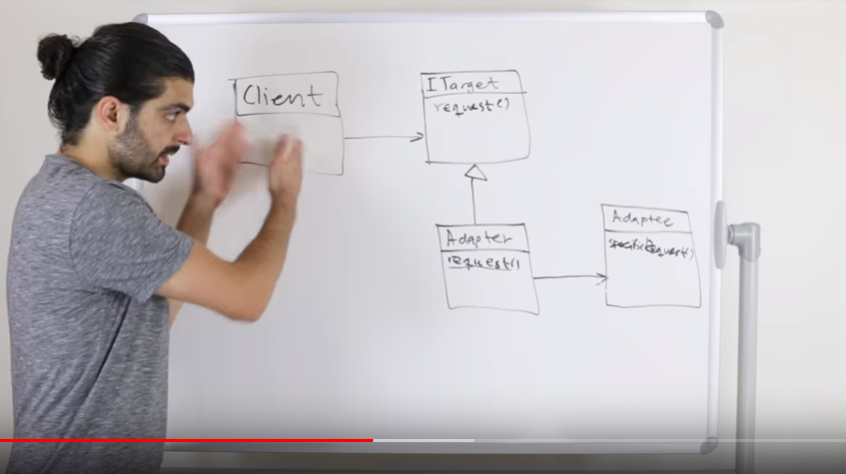 Client
ITarget
request()
Adapter
request()
Adaptee
specificRequest()